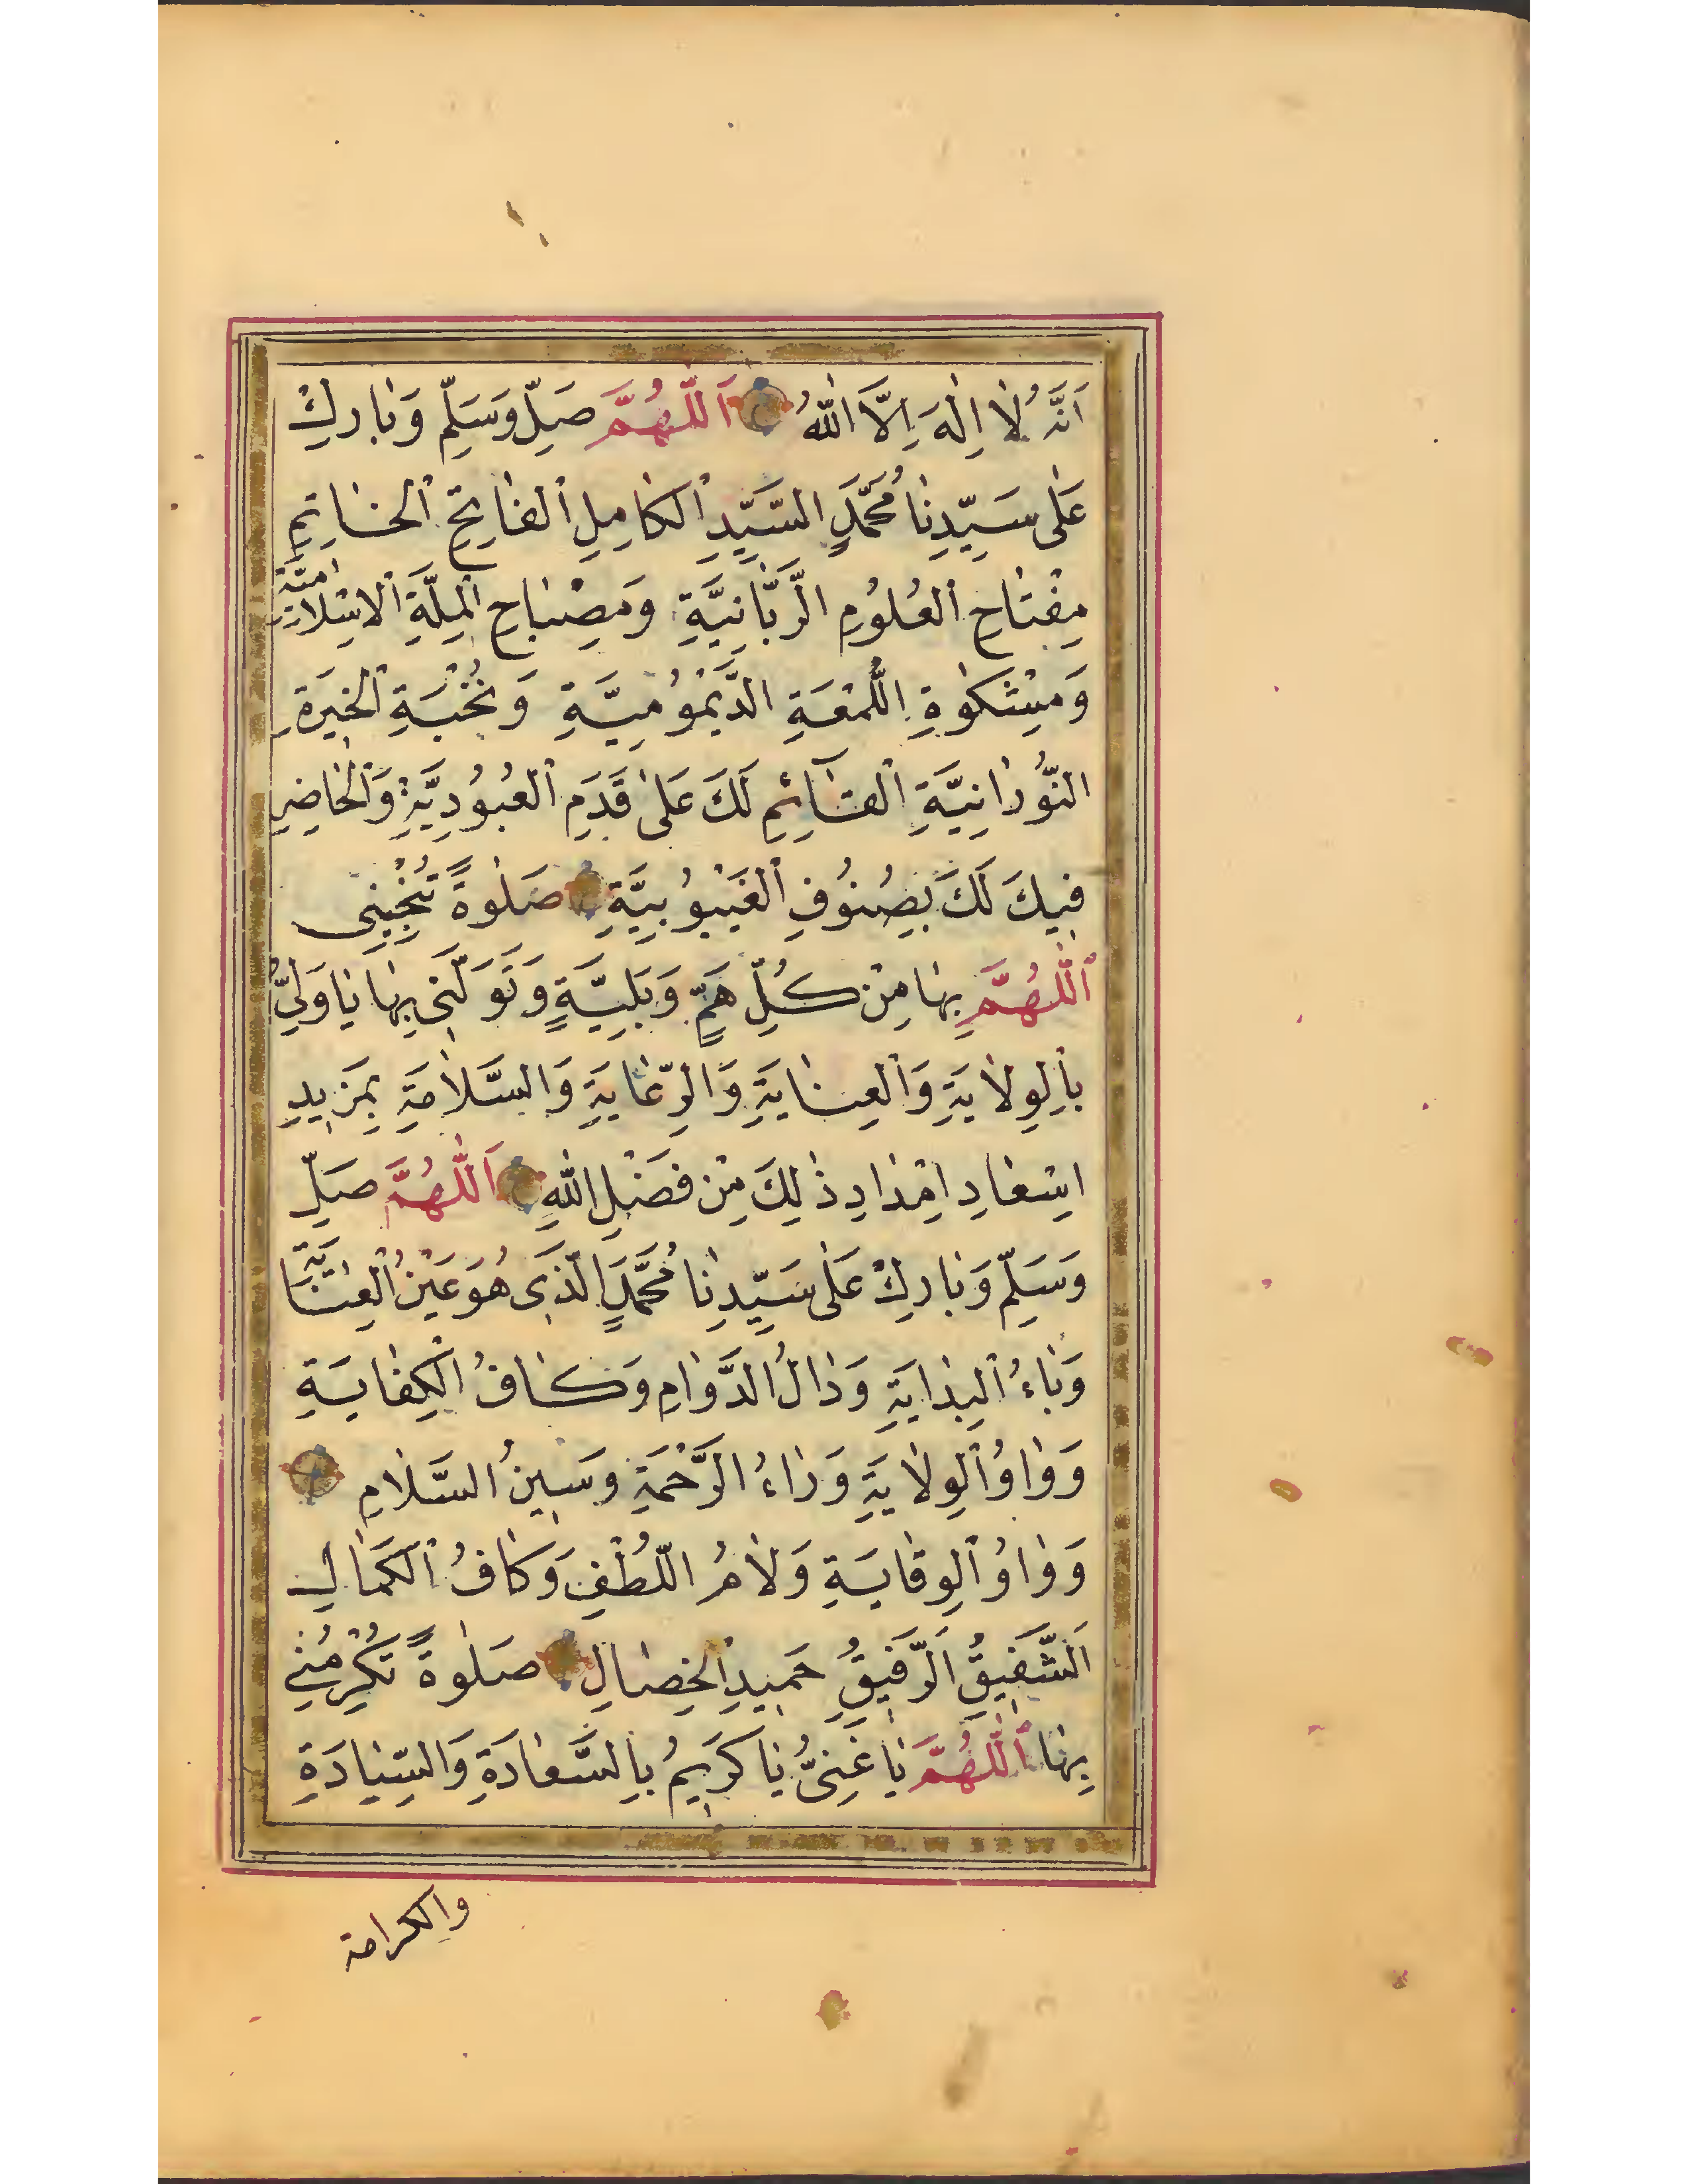 اَنَّهُ لَا اِلٰهَ اِلَّا اللّٰهُ اَللّٰهُمَّ صَلِّ وَسَلِّمْ وَبَارِكْ
عَلٰى سَيِّدِنَا مُحَمَّدٍ السَّيِّدِ الْكَامِلِ الْفَاتِحِ الْخَاتِمِ
مِفْتَاحِ الْعُلُومِ الرَّبَّانِيَّةِ وَمِصْبَاحِ الْمِلَّةِ الْاِسْلَامِيَّةِ
وَمِشْكٰوةِ اللُّمْعَةِ الدَّيْمُوْمِيَّةِ وَنُخْبَةِ الْخِيَرَةِ
النُّوْرَانِيَّةِ الْقَآئِمِ لَكَ عَلٰى قَدَمِ الْعُبُوْدِيَّةِ وَالْحَاضِرِ
فِيكَ لَكَ بِصُنُوْفِ الْغَيْبُوْبِيَّةِ صَلٰوةً تُنْجِيْنِى
اَللّٰهُمَّ بِهَا مِنْ كُلِّ هَمٍّ وَبَلِيَّةٍ وَتَوَلَّنِى بِهَا يَا وَلِىُّ
بِالْوِلَايَةِ وَالْعِنَايَةِ وَالرِّعَايَةِ وَالسَّلَامَةِ بِمَزِيدِ
اِسْعَادِ اِمْدَادِ ذٰلِكَ مِنْ فَضْلِ اللّٰهِ اَللّٰهُمَّ صَلِّ
وَسَلِّمْ وَبَارِكْ عَلٰى سَيِّدِنَا مُحَمَّدٍ الَّذِى هُوَ عَيْنُ الْعِنَايَةِ
وَبَاءُ الْبِدَايَةِ وَدَالُ الدَّوَامِ وَكَافُ الْكِفَايَةِ
وَوَاوُ الْوِلَايَةِ وَرَاءُ الرَّحْمَةِ وَسِينُ السَّلَامِ
وَوَاوُ الْوِقَايَةِ وَلَامُ اللُّطْفِ وَكَافُ الْكَمَالِ
اَلشَّفِيقُ الرَّفِيقُ حَمِيدِ الْخِصَالِ صَلٰوةً تُكْرِمُنِي
بِهَا اَللّٰهُمَّ يَا غَنِىُّ يَا كَرِيمُ بِالسَّعَادَةِ وَالسِّيَادَةِ
والكرامة